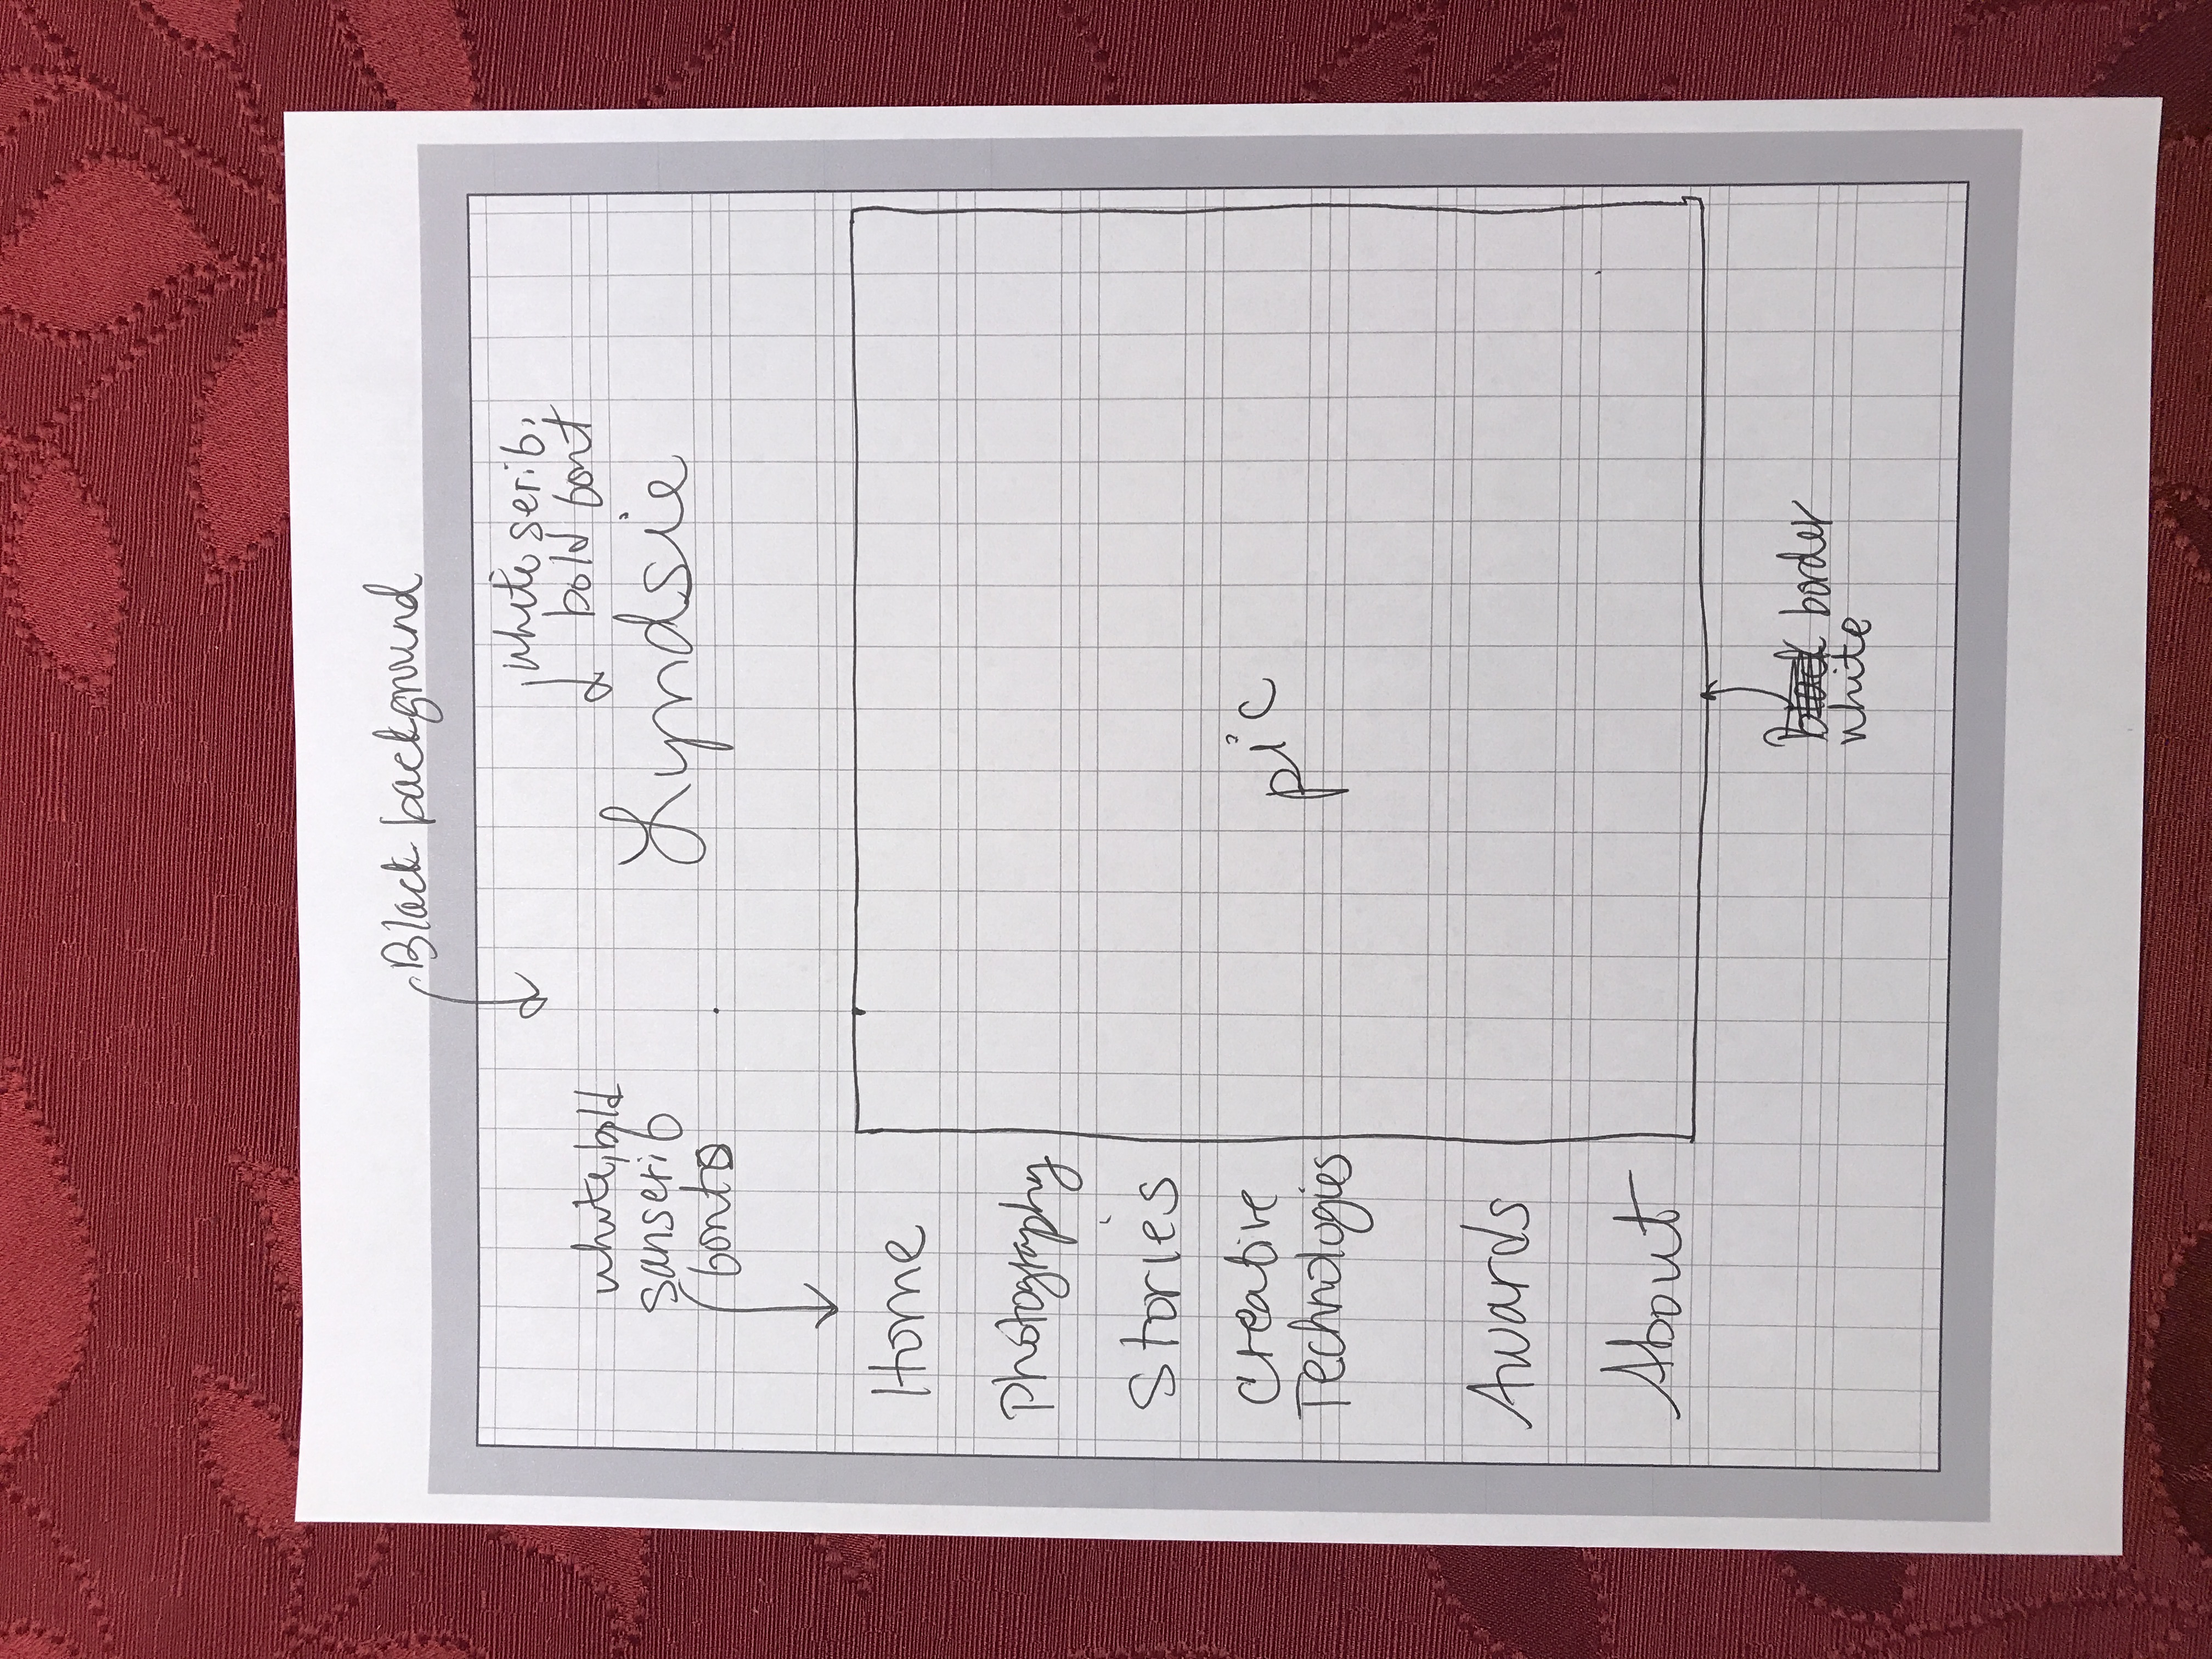 Black background
white serif,
bold font
Lyndsie
white, bold
sanserif
fonts
Home
Photography
Stories
Creative
Technologies
Awards
About
pic
Black border
white